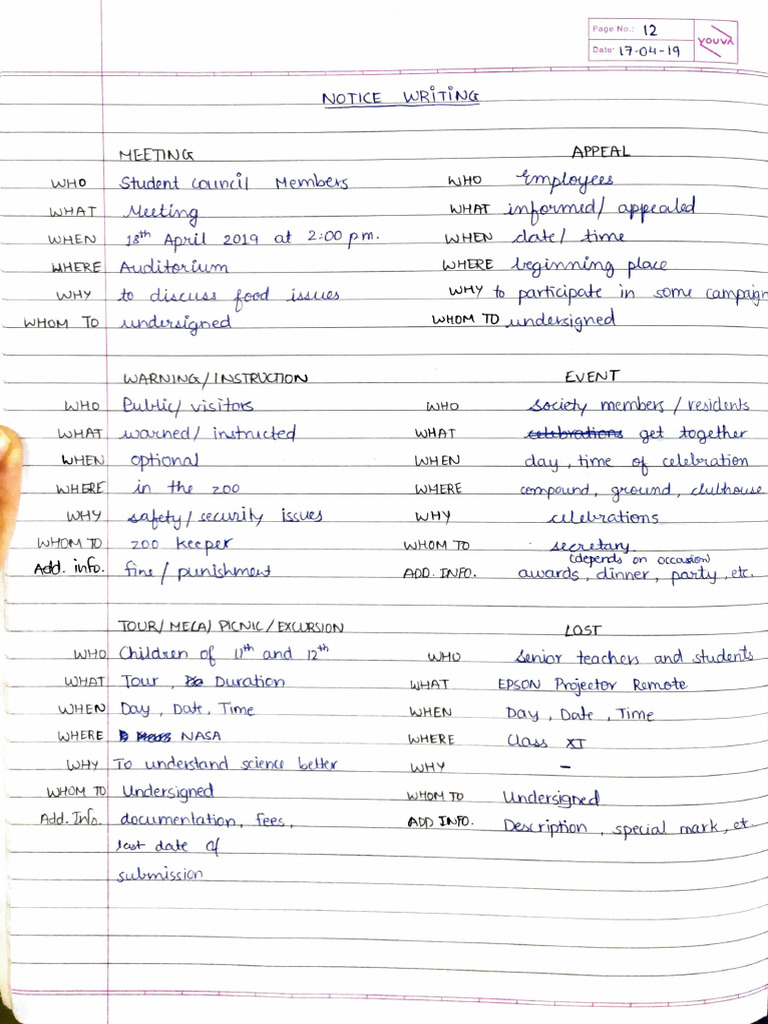 Page No.: 12
Date: 17-04-19
YOUVA
NOTICE WRITING
MEETING
WHO Student Council Members
WHAT Meeting
WHEN 18th April 2019 at 2:00 pm.
WHERE Auditorium
WHY to discuss food issues
WHOM TO undersigned
APPEAL
WHO Employees
WHAT informed/ appealed
WHEN date/ time
WHERE beginning place
WHY to participate in some campaign
WHOM TO undersigned
WARNING/INSTRUCTION
WHO Public/ visitors
WHAT warned/ instructed
WHEN optional
WHERE in the zoo
WHY safety/security issues
WHOM TO zoo keeper
Add. info. fine/punishment
EVENT
WHO society members / residents
WHAT celebrations get together
WHEN day, time of celebration
WHERE compound, ground, clubhouse
WHY celebrations
WHOM TO secretary.
(depends on occasion)
ADD. INFO. awards, dinner, party, etc.
TOUR/ MELA/ PICNIC/ EXCURSION
WHO Children of 11th and 12th
WHAT Tour, Duration
WHEN Day, Date, Time
WHERE NASA
WHY To understand science better
WHOM TO Undersigned
Add. Info. documentation, fees,
last date of
submission
LOST
WHO Senior teachers and students
WHAT EPSON Projector Remote
WHEN Day, Date, Time
WHERE Class XI
WHY -
WHOM TO Undersigned
ADD INFO. Description, special mark, et